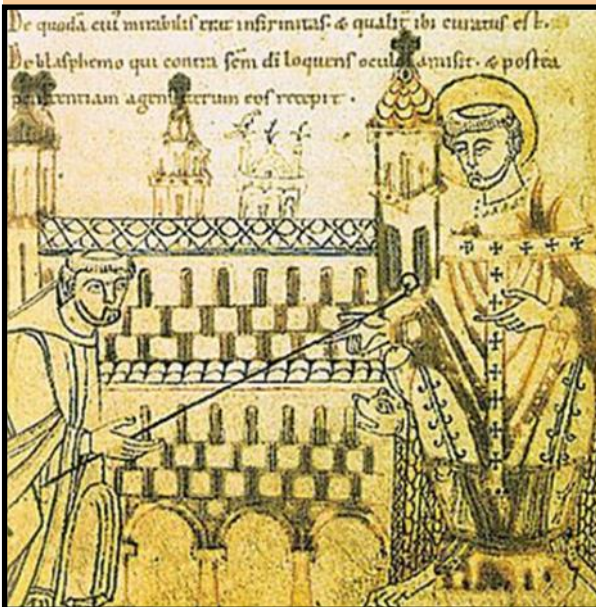 De quodā cui mirabilis erat infirmitas & qualit ibi curatus est.
De blasphemo qui contra scm̄ di loquens ocul amisit. & postea
agens iterum eos recepit.